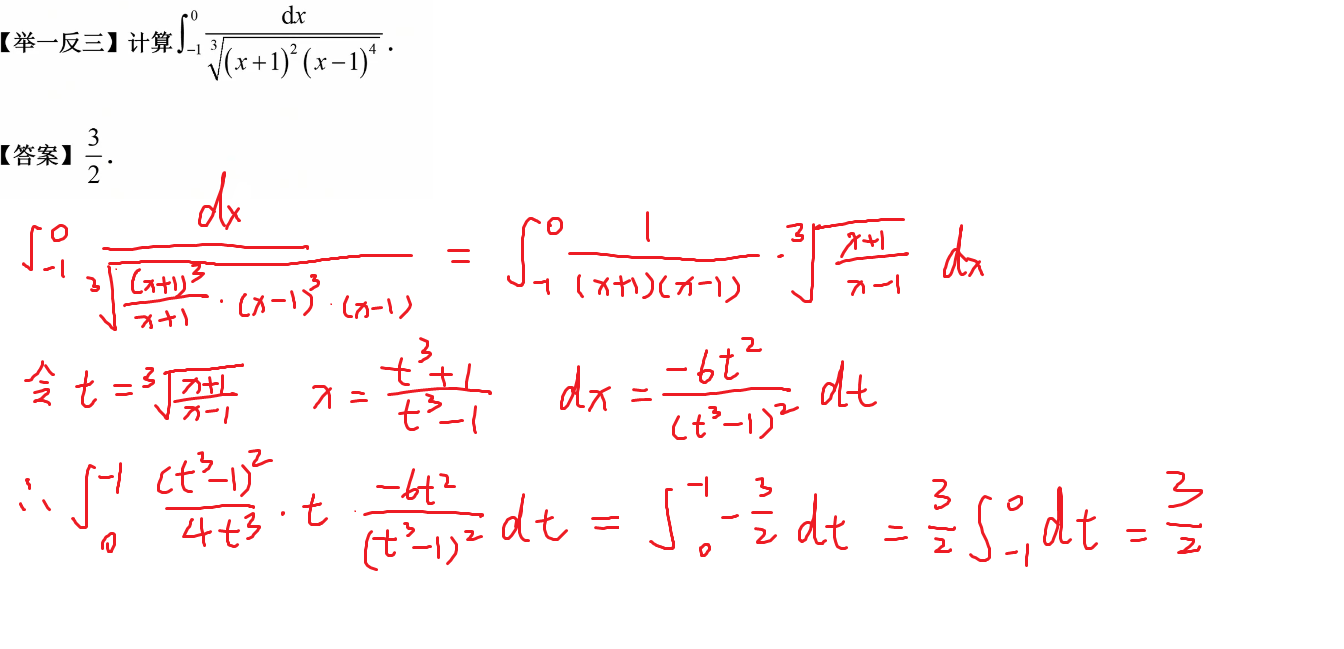 【举一反三】计算$\int_{-1}^{0}\frac{\mathrm{d}x}{\sqrt[3]{(x+1)^2(x-1)^4}}$.
【答案】$\frac{3}{2}$.
$\int_{-1}^{0}\frac{dx}{\sqrt[3]{\frac{(x+1)^3}{x+1}\cdot(x-1)^3\cdot(x-1)}}=\int_{-1}^{0}\frac{1}{(x+1)(x-1)}\cdot\sqrt[3]{\frac{x+1}{x-1}}\,dx$
令 $t=\sqrt[3]{\frac{x+1}{x-1}}$ $x=\frac{t^3+1}{t^3-1}$ $dx=\frac{-6t^2}{(t^3-1)^2}dt$
$\therefore\int_{0}^{-1}\frac{(t^3-1)^2}{4t^3}\cdot t\cdot\frac{-6t^2}{(t^3-1)^2}dt=\int_{0}^{-1}-\frac{3}{2}dt=\frac{3}{2}\int_{-1}^{0}dt=\frac{3}{2}$